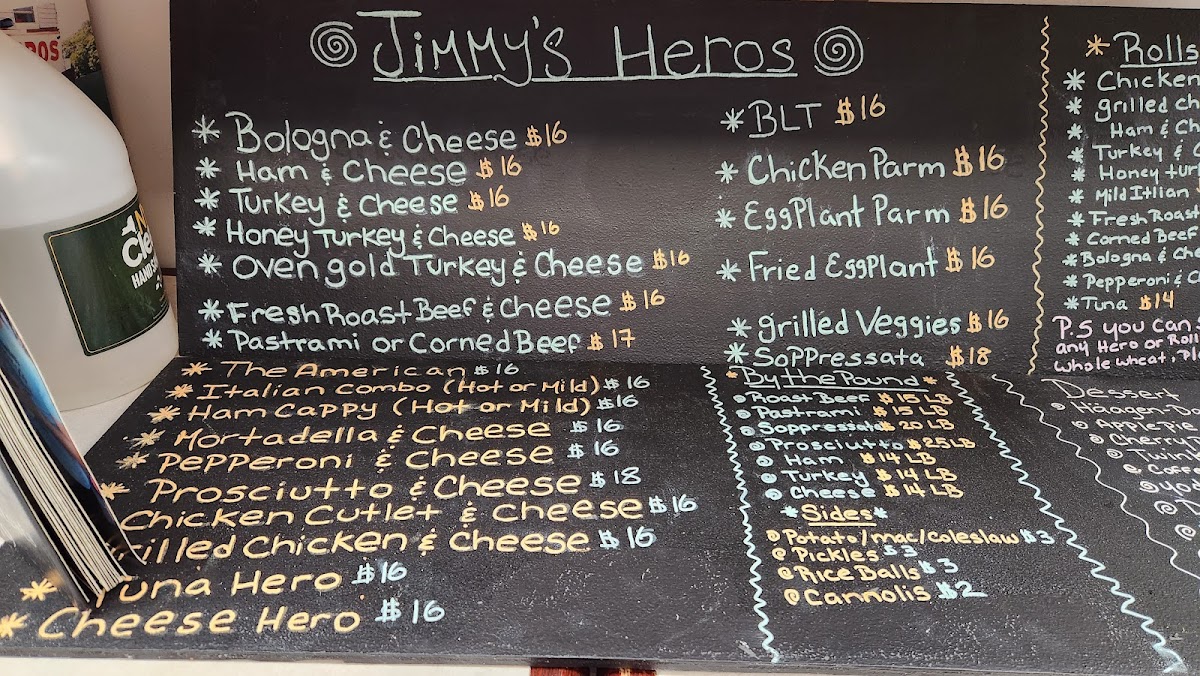 Jimmy's Heros
* Bologna & Cheese $16
* Ham & Cheese $16
* Turkey & Cheese $16
* Honey Turkey & Cheese $16
* Oven gold Turkey & Cheese $16
* Fresh Roast Beef & Cheese $16
* Pastrami or Corned Beef $17
* The American $16
* Italian Combo (Hot or Mild) $16
* Ham Cappy (Hot or Mild) $16
* Mortadella & Cheese $16
* Pepperoni & Cheese $16
* Prosciutto & Cheese $18
Chicken Cutlet & Cheese $16
rilled Chicken & Cheese $16
* Tuna Hero $16
* Cheese Hero $16
* BLT $16
* Chicken Parm $16
* EggPlant Parm $16
* Fried EggPlant $16
* grilled Veggies $16
* Soppressata $18
* By the Pound *
Roast Beef $15 LB
Pastrami $15 LB
Soppressata $20 LB
Prosciutto $25 LB
Ham $14 LB
Turkey $14 LB
Cheese $14 LB
* Sides *
Potato/mac/coleslaw $3
Pickles $3
Rice Balls $3
Cannolis $2
* Rolls
* Chicken
* grilled ch
* Ham & Ch
* Turkey & C
* Honey tur
* Mild Itlian
* Fresh Roast
* Corned Beef
* Bologna & Che
* Pepperoni & C
* Tuna $14
P.S you can
any Hero or Roll
whole wheat. Pl
Dessert
Häagen-Da
Apple Pie
Cherry
Twink
Coff
Yod
Cle
HAND